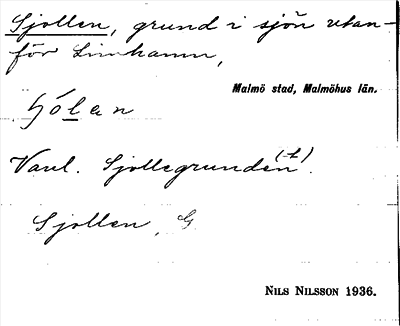 Sjollen, grund i sjön utan-
för Limhamn,
Malmö stad, Malmöhus län.
Vanl. Sjollegrunden(-t).
Sjollen, G
NILS NILSSON 1936.